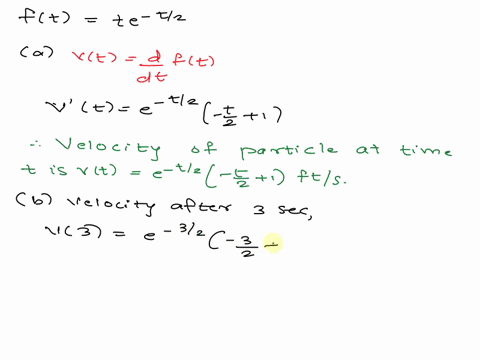 f(t) = te^{-t/2}
(a) v(t) = d/dt f(t)
v'(t) = e^{-t/2} (-t/2 + 1)
∴ Velocity of particle at time
t is v(t) = e^{-t/2} (-t/2 + 1) ft/s.
(b) velocity after 3 sec,
v(3) = e^{-3/2} (-3/2 -